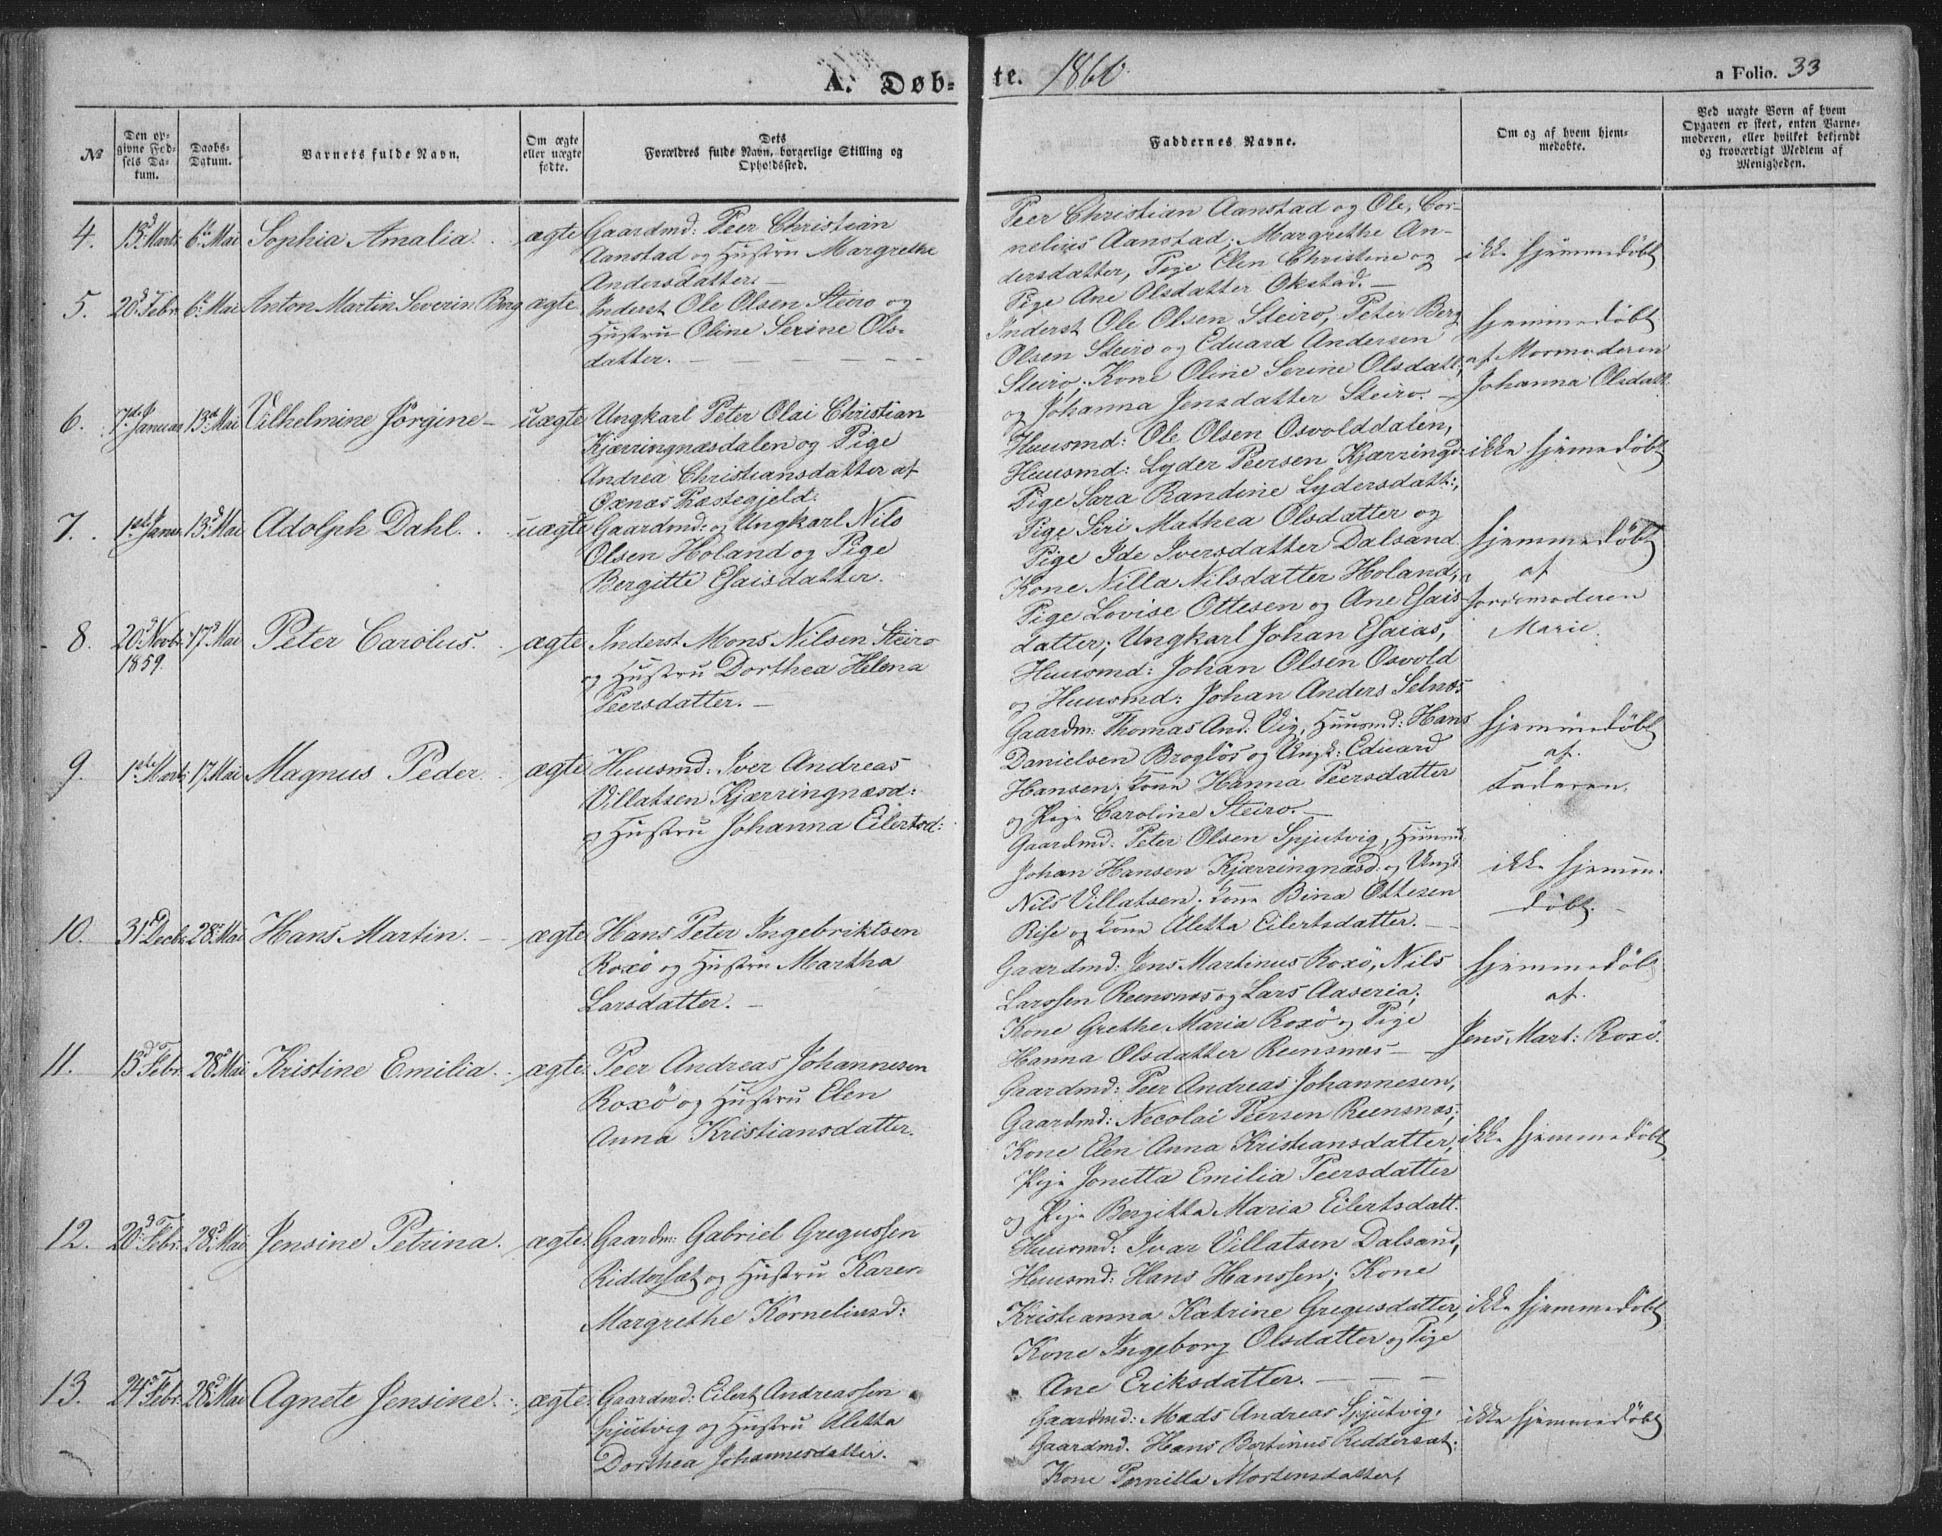 A. Døb-
te. 1860
a Folio. 33
№
Den op-
givne Fød-
sels Da-
tum.
Daabs-
Datum.
Barnets fulde Navn.
Om ægte
eller uægte
fødte.
Dets
Forældres fulde Navn, borgerlige Stilling og
Opholdssted.
Faddernes Navne.
Om og af hvem hjem-
medøbte.
Ved uægte Børn af hvem
Opgaven er skeet, enten Barne-
moderen, eller hvilket bekjendt
og troværdigt Medlem af
Menigheden.
4. 13d Marts 6te Mai Sophia Amalia. ægte
Gaardmd: Peer Christian
Aanstad og Hustru Margrethe
Andersdatter. —
Peer Christian Aanstad og Ole, Cor-
nelius Aanstad; Margrethe An-
dersdatter, Pige Elen Christine og
Pige Ane Olsdatter Okstad. —
ikke hjemmedøbt
5. 20d Febr. 6te Mai Anton Martin Severin Berg ægte
Inderst Ole Olsen Steiro og
Hustru Oline Serine Ols-
datter. — — — — —
Inderst Ole Olsen Steiro, Peter Berg
Olsen Steiro og Eduard Andersen
Steiro, Kone Oline Serine Olsdatt:,
og Johanna Jensdatter Steiro. —
hjemmedøbt
af Mormoderen
Johanna Olsdatt.
6. 7de Januar 13d Mai Vilhelmine Jörgine — uægte
Ungkarl Peter Olai Christian
Kjærringnæsdalen og Pige
Andrea Christiansdatter af
Øxnæs Præstegjeld.
Huusmd: Ole Olsen Osvolddalen,
Huusmd: Lyder Peersen Kjærringd:
Pige Sara Randine Lydersdatt:,
Pige Siri Mathea Olsdatter og
Pige Ide Iversdatter Dalsand
ikke hjemedøbt
7. 1ste Januar 13d Mai Adolph Dahl. uægte
Gaardmd: og Ungkarl Nils
Olsen Holand og Pige
Bergitte Esaisdatter.
Kone Nilla Nilsdatter Holand,
Pige Lovise Ottesen og Ane Esais-
datter; Ungkarl Johan Esaias,
Huusmd: Johan Olsen Osvold
og Huusmd: Johan Anders Selnæs
hjemmedøbt
af
Jordemoderen
Marie.
8. 20d Novbr. 1859. 17d Mai Peter Carolus. ægte
Inderst Mons Nilsen Steiro
og Hustru Dorthea Helena
Peersdatter. —
Gaardm: Thomas And: Vig, Huusmd: Hans
Danielsen Brogløs og Ungk: Eduard
Hansen; Kone Hanna Peersdatter
og Pige Caroline Steiro. —
hjemmedøbt
af
Faderen.
9. 1ste Marts 17 Mai Magnus Peder. ægte
Huusmd: Iver Andreas
Villatsen Kjærringnæsd:
og Hustru Johanna Eilertsd:
Gaardmd: Peter Olsen Spjutvig, Huusmd
Johan Hansen Kjærringnæsd: og Ungk.
Nils Villatsen; Kone Bina Ottesen
Rise og Kone Aletta Eilertsdatter. —
ikke hjemme-
døbt. —
10. 31te Decbr 28de Mai Hans Martin. — ægte
Hans Peter Ingebriktsen
Roxö og Hustru Martha
Larsdatter. —
Gaardmd: Jens Martinus Roxö, Nils
Larssen Reensnæs og Lars Aaseria;
Kone Grethe Maria Roxö og Pige
Hanna Olsdatter Reensnæs —
hjemmedøbt
af
Jens Mart: Roxö.
11. 13d Febr. 28d Mai Kristine Emilia. ægte
Peer Andreas Johannesen
Roxö og Hustru Elen
Anna Kristiansdatter.
Gaardmd: Peer Andreas Johannesen,
Gaardmd: Necolai Peersen Reensnæs;
Kone Elen Anna Kristiansdatter,
Pige Jonetta Emilia Peersdatter
og Pige Bergitta Maria Eilertsdatt.
ikke hjemmedøbt
12. 20d Febr. 28d Mai Jensine Petrina. ægte
Gaardm: Gabriel Gregussen
Riddersæt og Hustru Karen
Margrethe Korneliusd:
Huusmd: Ivar Villatsen Dalsand,
Huusmd: Hans Hanssen; Kone
Kristianna Katrine Gregusdatter,
Kone Ingeborg Olsdatter og Pige
Ane Eriksdatter. — — —
ikke hjemmedøbt
13. 24d Febr. 28d Mai Agnete Jensine. ægte
Gaardmd: Eilert Andreassen
Spjutvig og Hustru Aletta
Dorthea Johannesdatter.
Gaardmd: Mads Andreas Spjutvig,
Gaardmd. Hans Bertinus Riddersæt.
Kone Pernilla Mortensdatter,
ikke hjemmedøbt